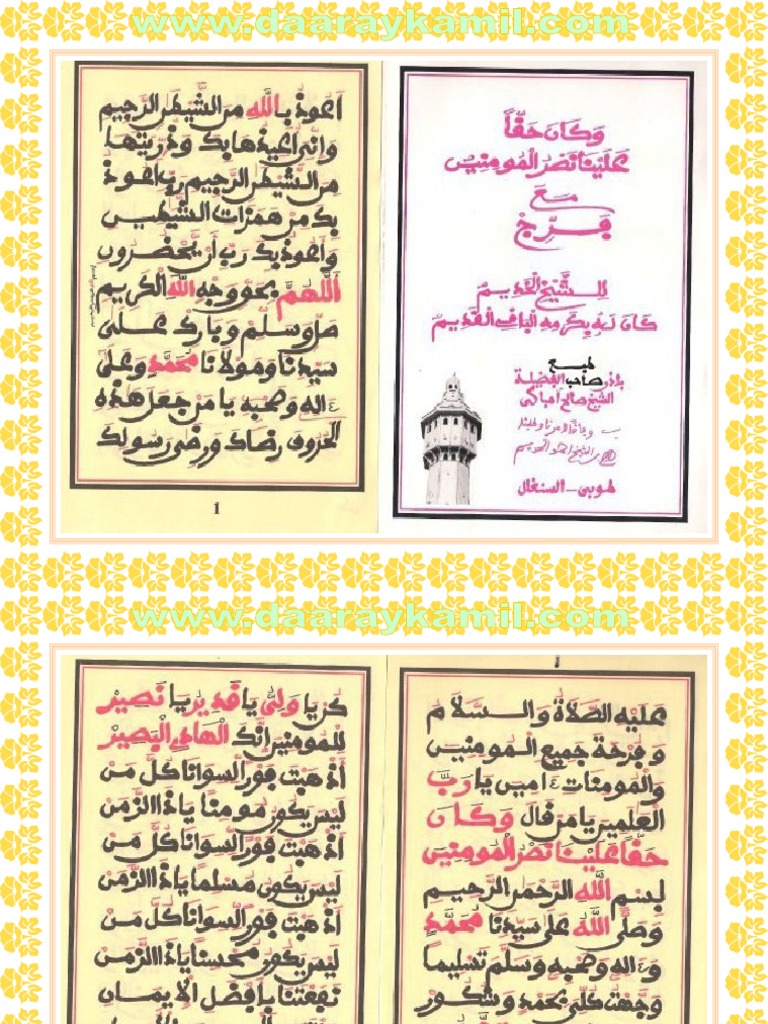 www.daaraykamil.com
وَكَانَ حَقًّا
عَلَيْنَا نَصْرُ الْمُومِنِينَ
مَعَ
فَرِّجْ
لِلشَّيْخِ الْخَدِيمْ
كَانَ لَهُ بِكَرَمِهِ الْبَاقِ الْقَدِيمْ
طبع
بإذن صاحب الفضيلة
الشيخ صالح امباكى
طوبى - السنغال
أعوذ بالله من الشيطن الرجيم
وإنى أعيذها بك وذريتها
من الشيطن الرجيم رب أعوذ
بك من همزات الشيطين
وأعوذ بك رب أن يحضرون
اللهم بحق وجه الله الكريم
صل وسلم وبارك على
سيدنا ومولانا محمد وعلى
ءاله وصحبه يا من جعل هذه
الحروف رضاك ورضى رسولك
1
www.daaraykamil.com
عليه الصلاة والسلام
وفرحة جميع المومنين
والمومنات ءامين يا رب
العلمين يا من قال وكان
حقا علينا نصر المومنين
بسم الله الرحمن الرحيم
وصلى الله على سيدنا محمد
وءاله وصحبه وسلم تسليما
وجهت كلى محمد وشكور
يا ولى يا قدير يا نصير
للمومنين إنك الهادى البصير
أذهبت فور السوانا كل من
ليس يكون مومنا ياذا الزمن
أذهبت فور السوانا كل من
ليس يكون مسلما ياذا الزمن
أذهبت فور السوانا كل من
ليس يكون محسنا ياذا الزمن
نفعتنا بأفضل الإيمان